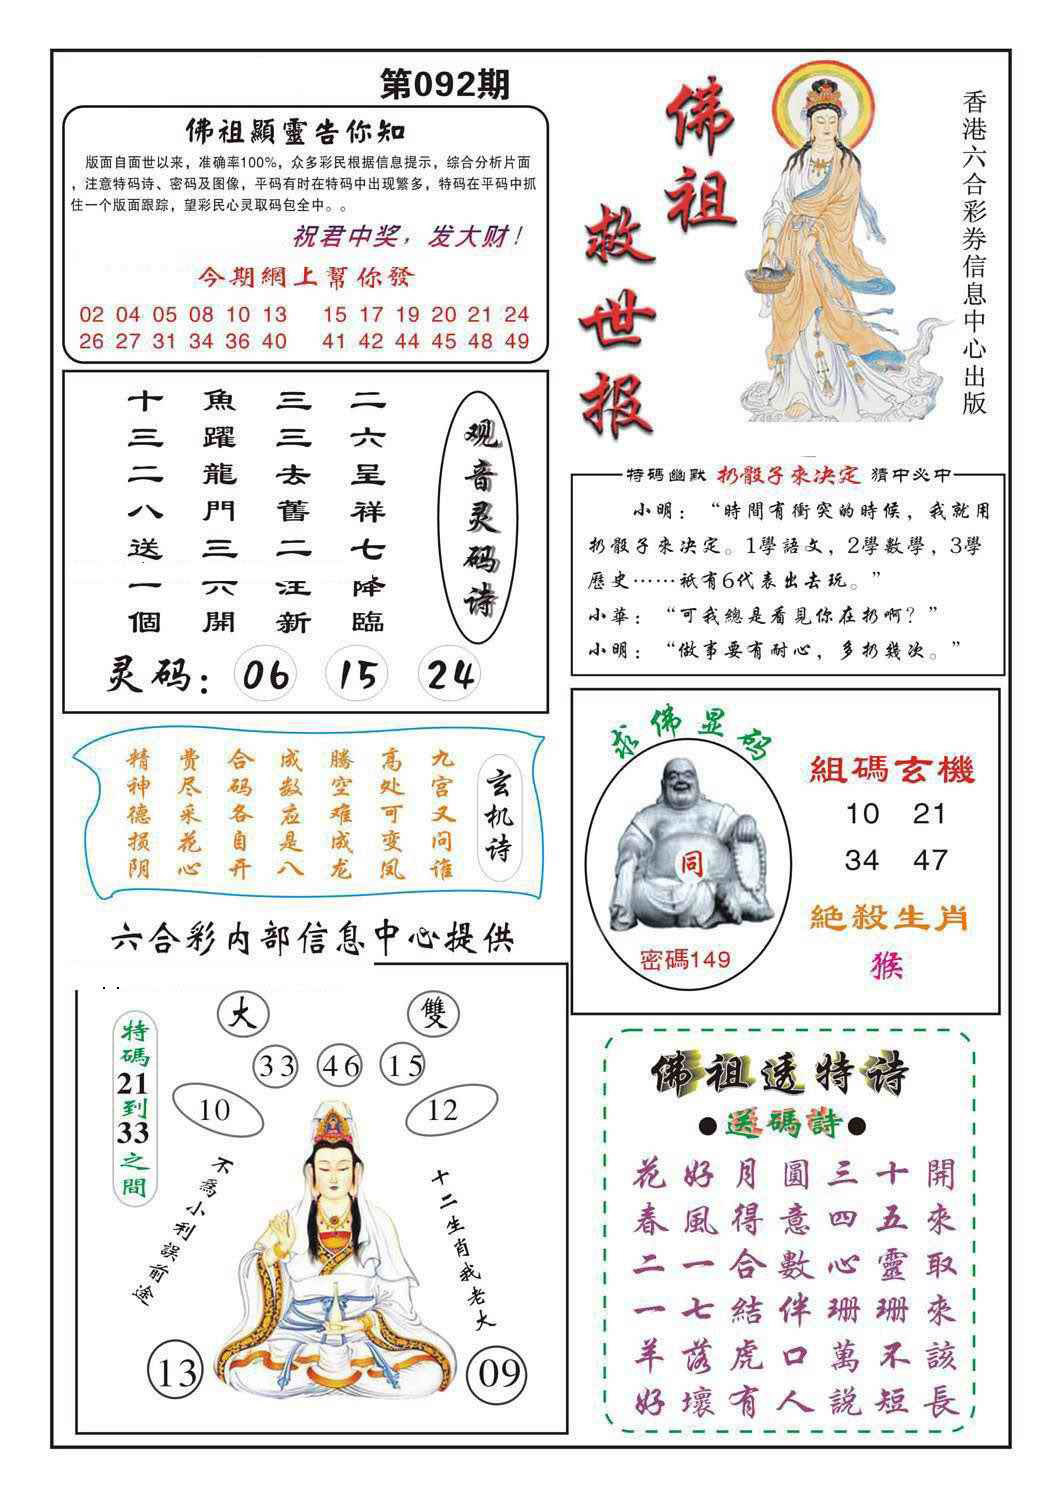 第092期
佛祖顯靈告你知
版面自面世以来，准确率100%，众多彩民根据信息提示，综合分析片面
，注意特码诗、密码及图像，平码有时在特码中出现繁多，特码在平码中抓
住一个版面跟踪，望彩民心灵取码包全中。。
祝君中奖，发大财！
今期網上幫你發
02 04 05 08 10 13 15 17 19 20 21 24
26 27 31 34 36 40 41 42 44 45 48 49
佛祖
救世报
香港六合彩券信息中心出版
观音灵码诗
二六呈祥七降臨
三三去舊二汪新
魚躍龍門三六開
十三二八送一個
灵码：06 15 24
特碼幽默 扔骰子來決定 猜中必中
小明：“時間有衝突的時候，我就用
扔骰子來决定。1學語文，2學數學，3學
歷史……祇有6代表出去玩。”
小華：“可我總是看見你在扔啊？”
小明：“做事要有耐心，多扔幾次。”
玄机诗
九宫又问谁
高处可变凤
腾空难成龙
成数应是八
合码各自开
费尽采花心
精神德损阴
求佛显码
同
密碼149
組碼玄機
10 21
34 47
絕殺生肖
猴
六合彩内部信息中心提供
大
雙
33 46 15
10
12
特碼21到33之間
不為小利誤前途
十二生肖我老大
13
09
佛祖透特诗
●送碼詩●
花好月圓三十開
春風得意四五來
二一合數心靈取
一七結伴珊珊來
羊落虎口萬不該
好壞有人説短長